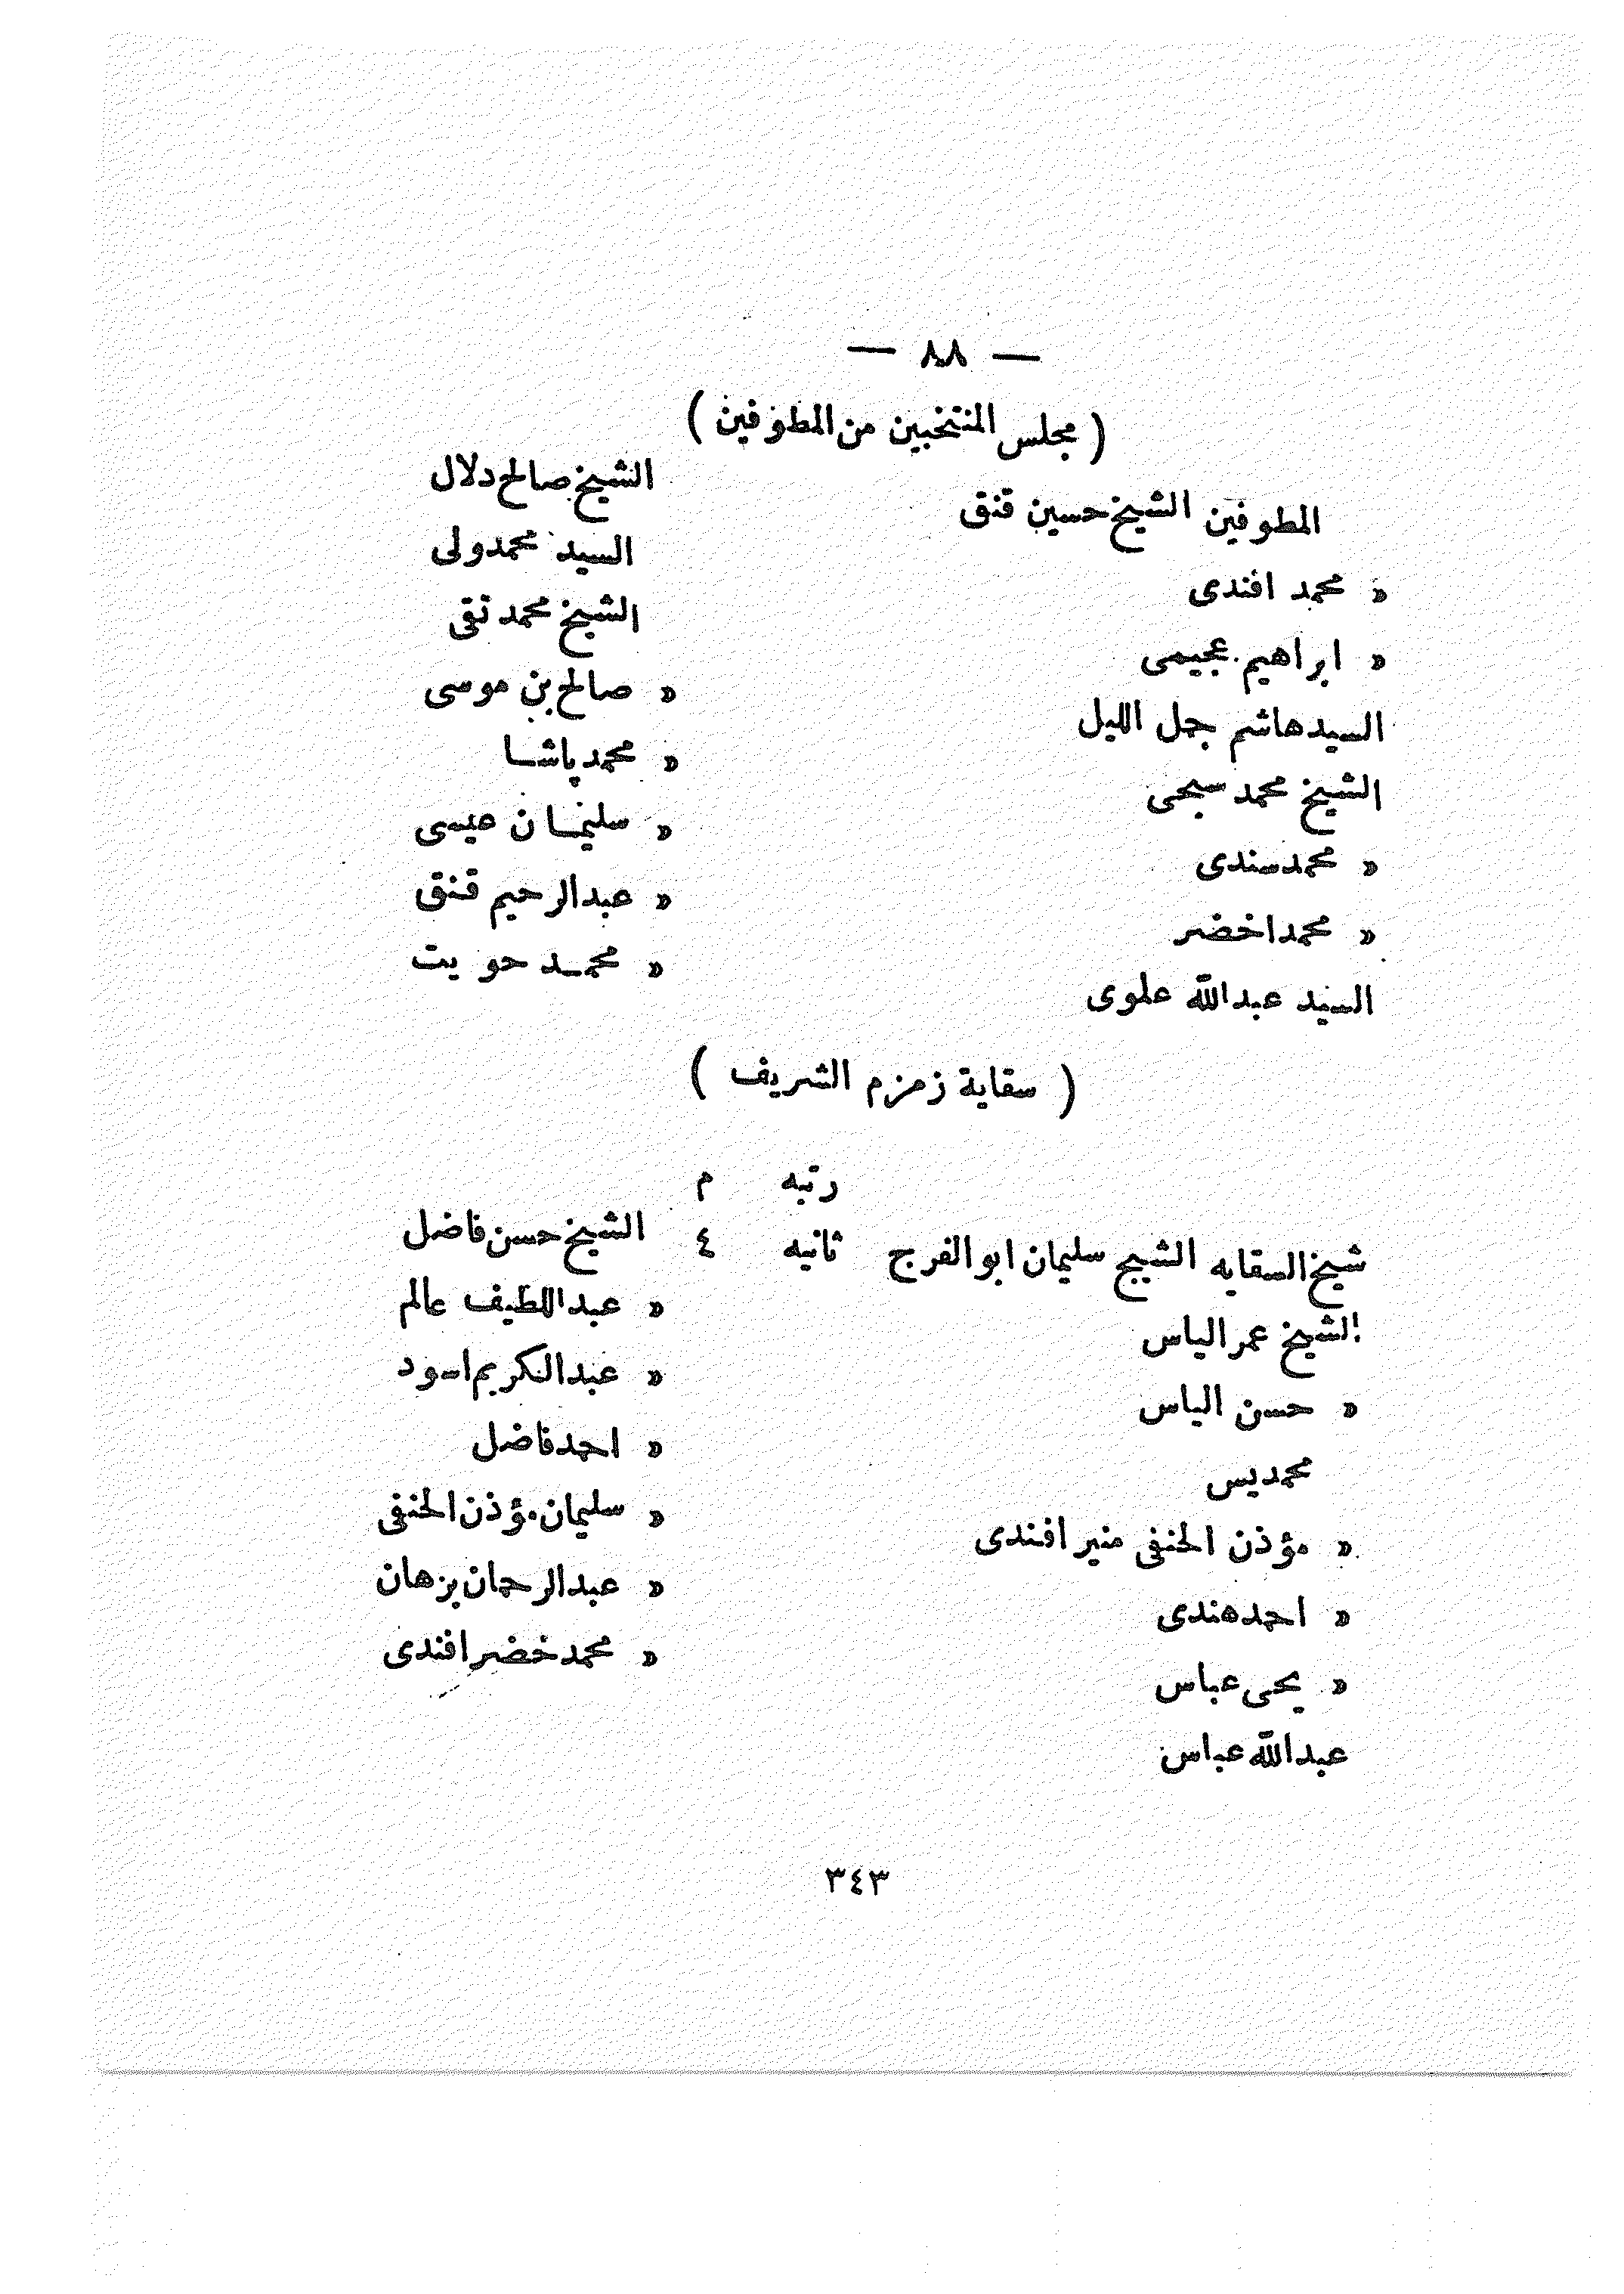 — ٨٨ —
( مجلس المنتخبين من المطوفين )
المطوفين الشيخ حسين قنق
« محمد افندى
« ابراهيم عجيمى
السيد هاشم جمل الليل
الشيخ محمد سبحى
« محمد سندى
« محمد اخضر
السيد عبدالله علوى
الشيخ صالح دلال
السيد محمد ولى
الشيخ محمد تقى
« صالح بن موسى
« محمد پاشا
« سليمان عيسى
« عبدالرحيم قنق
« محمد حويت
( سقاية زمزم الشريف )
رتبه م
شيخ السقايه الشيخ سليمان ابو الفرج ثانيه ٤
الشيخ عمر الياس
« حسن الياس
محمد يس
« مؤذن الحنفى منير افندى
« احمد هندى
« يحى عباس
عبدالله عباس
الشيخ حسن فاضل
« عبداللطيف عالم
« عبدالكريم اسود
« احمد فاضل
« سليمان مؤذن الحنفى
« عبدالرحمان بزهان
« محمد خضر افندى
٣٤٣